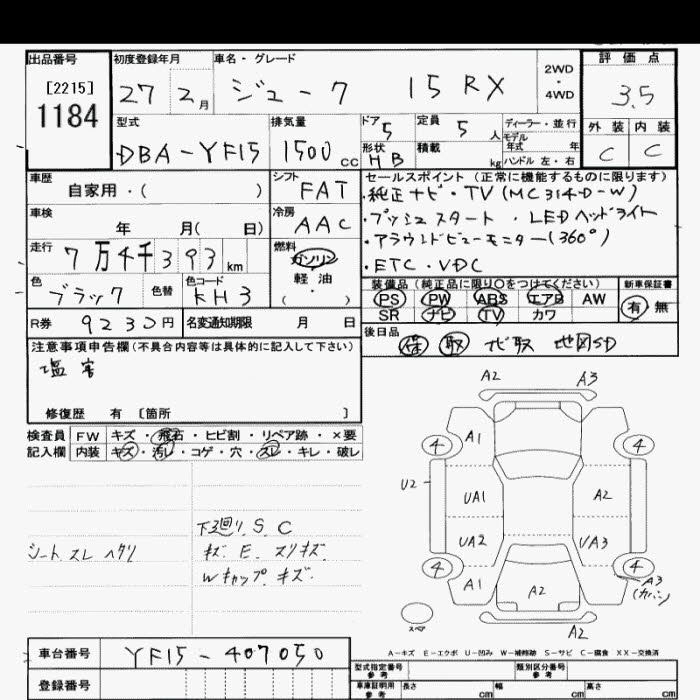 出品番号 初度登録年月 車名・グレード 2WD・4WD 評価点
[2215]
1184
27 2月 ジューク 15RX 3.5
型式 排気量 ドア 定員 ディーラー・並行 外装 内装
DBA-YF15 1500cc 5 5人 モデル年式 年 C C
形状 HB 積載 kg ハンドル 左・右
車歴 シフト セールスポイント(正常に機能するものに限ります)
自家用・( ) FAT ・純正ナビ・TV(MC314D-W)
車検 冷房 ・プッシュスタート ・LEDヘッドライト
年 月( 日) AAC ・アラウンドビューモニター(360°)
走行 燃料 ・ETC・VDC
7万4千393km ガソリン
色 色替 色コード 軽油
ブラック KH3 ・( )
装備品(純正品に限り○をつけてください) 新車保証書
PS PW ABS エアB AW 有・無
SR ナビ TV カワ
R券 9230円 名変通知期限 月 日
後日品
保 取 ナビ取 地図SD
注意事項申告欄(不具合内容等は具体的に記入して下さい)
塩害
修復歴 有 [箇所 ]
検査員 FW キズ・飛石・ヒビ割・リペア跡・×要
記入欄 内装 キズ・汚レ・コゲ・穴・スレ・キレ・破レ
シート スレ ヘタリ
下廻り.S.C
キズ.E.スリキズ.
Wキャップ キズ.
A2 A3
4 A1 4
U2 UA1 A2
UA2 UA3
4 A1 A2 4
A3
(カバン)
スペア A2
A-キズ E-エクボ U-凹み W-補修跡 S-サビ C-腐食 XX-交換済
車台番号 YF15-407050
登録番号
型式指定番号 参考 類別区分番号 参考
車庫証明用 参考 長さ cm 幅 cm 高さ cm